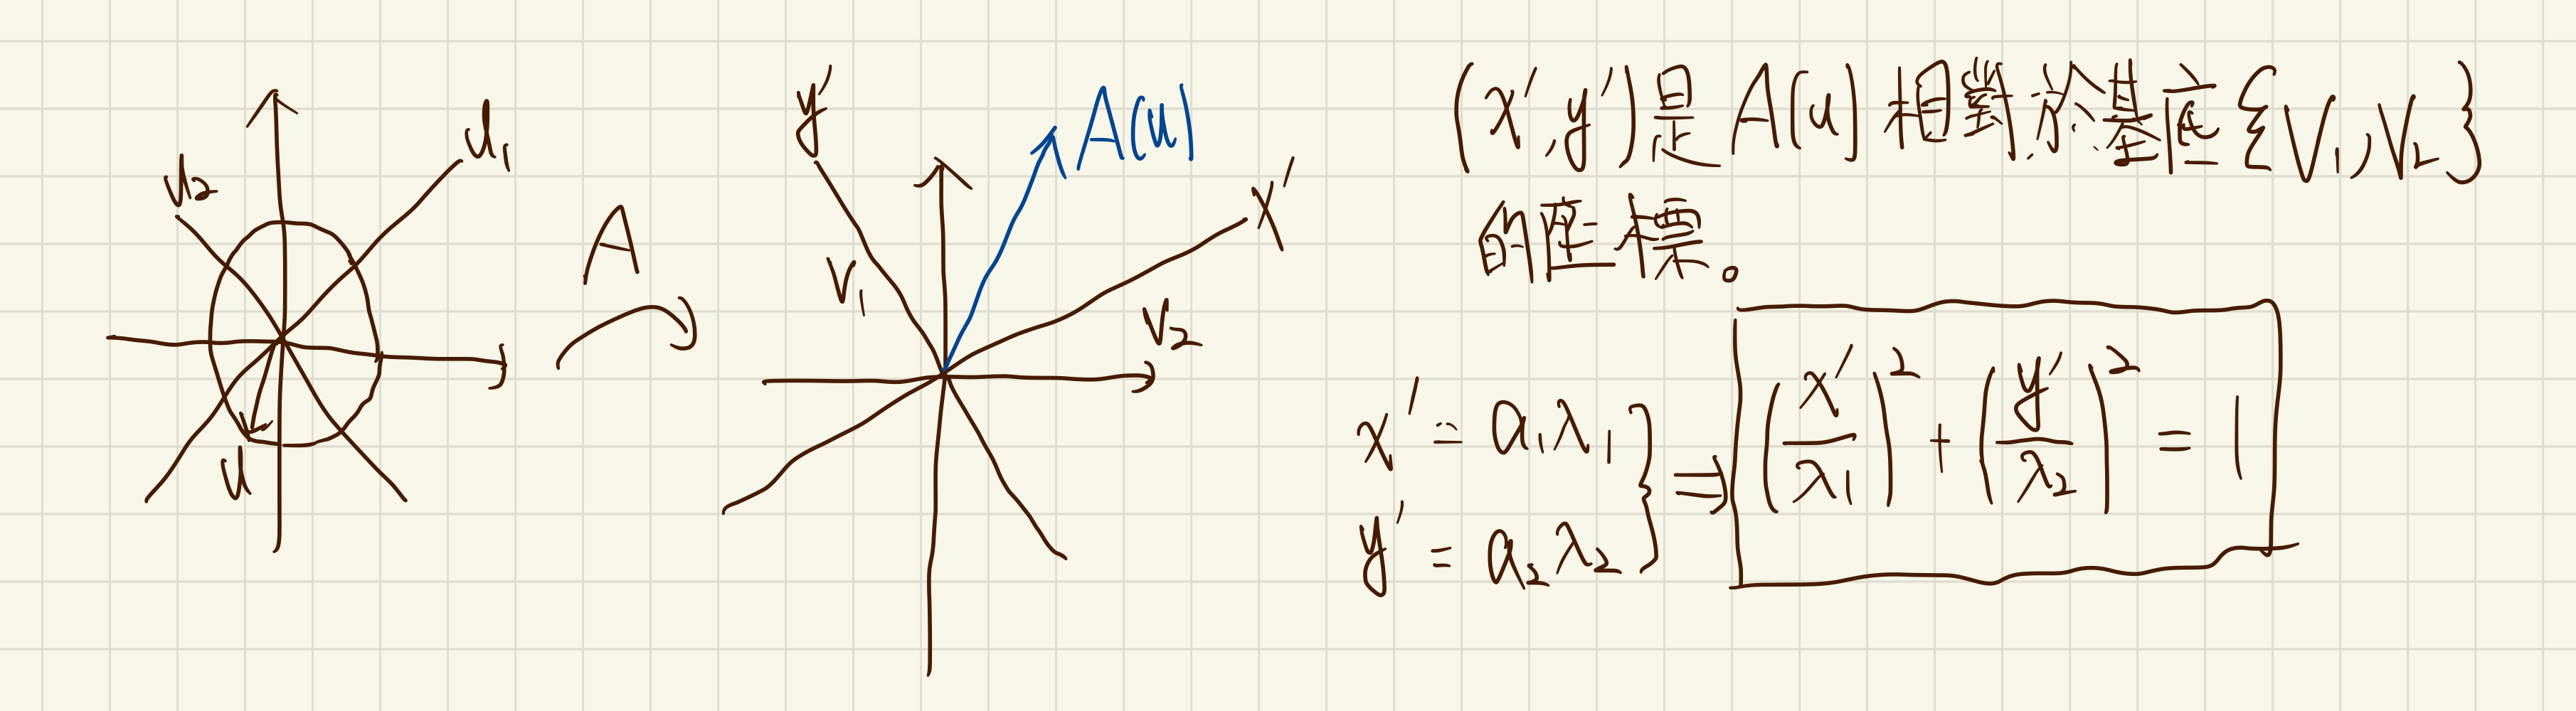 u₂
u₁
u
A
y'
A(u)
x'
V₁
V₂
(x', y')是A(u)相對於基底{V₁, V₂}
的座標。
x' = a₁λ₁
y' = a₂λ₂ } ⇒ (x'/λ₁)² + (y'/λ₂)² = 1